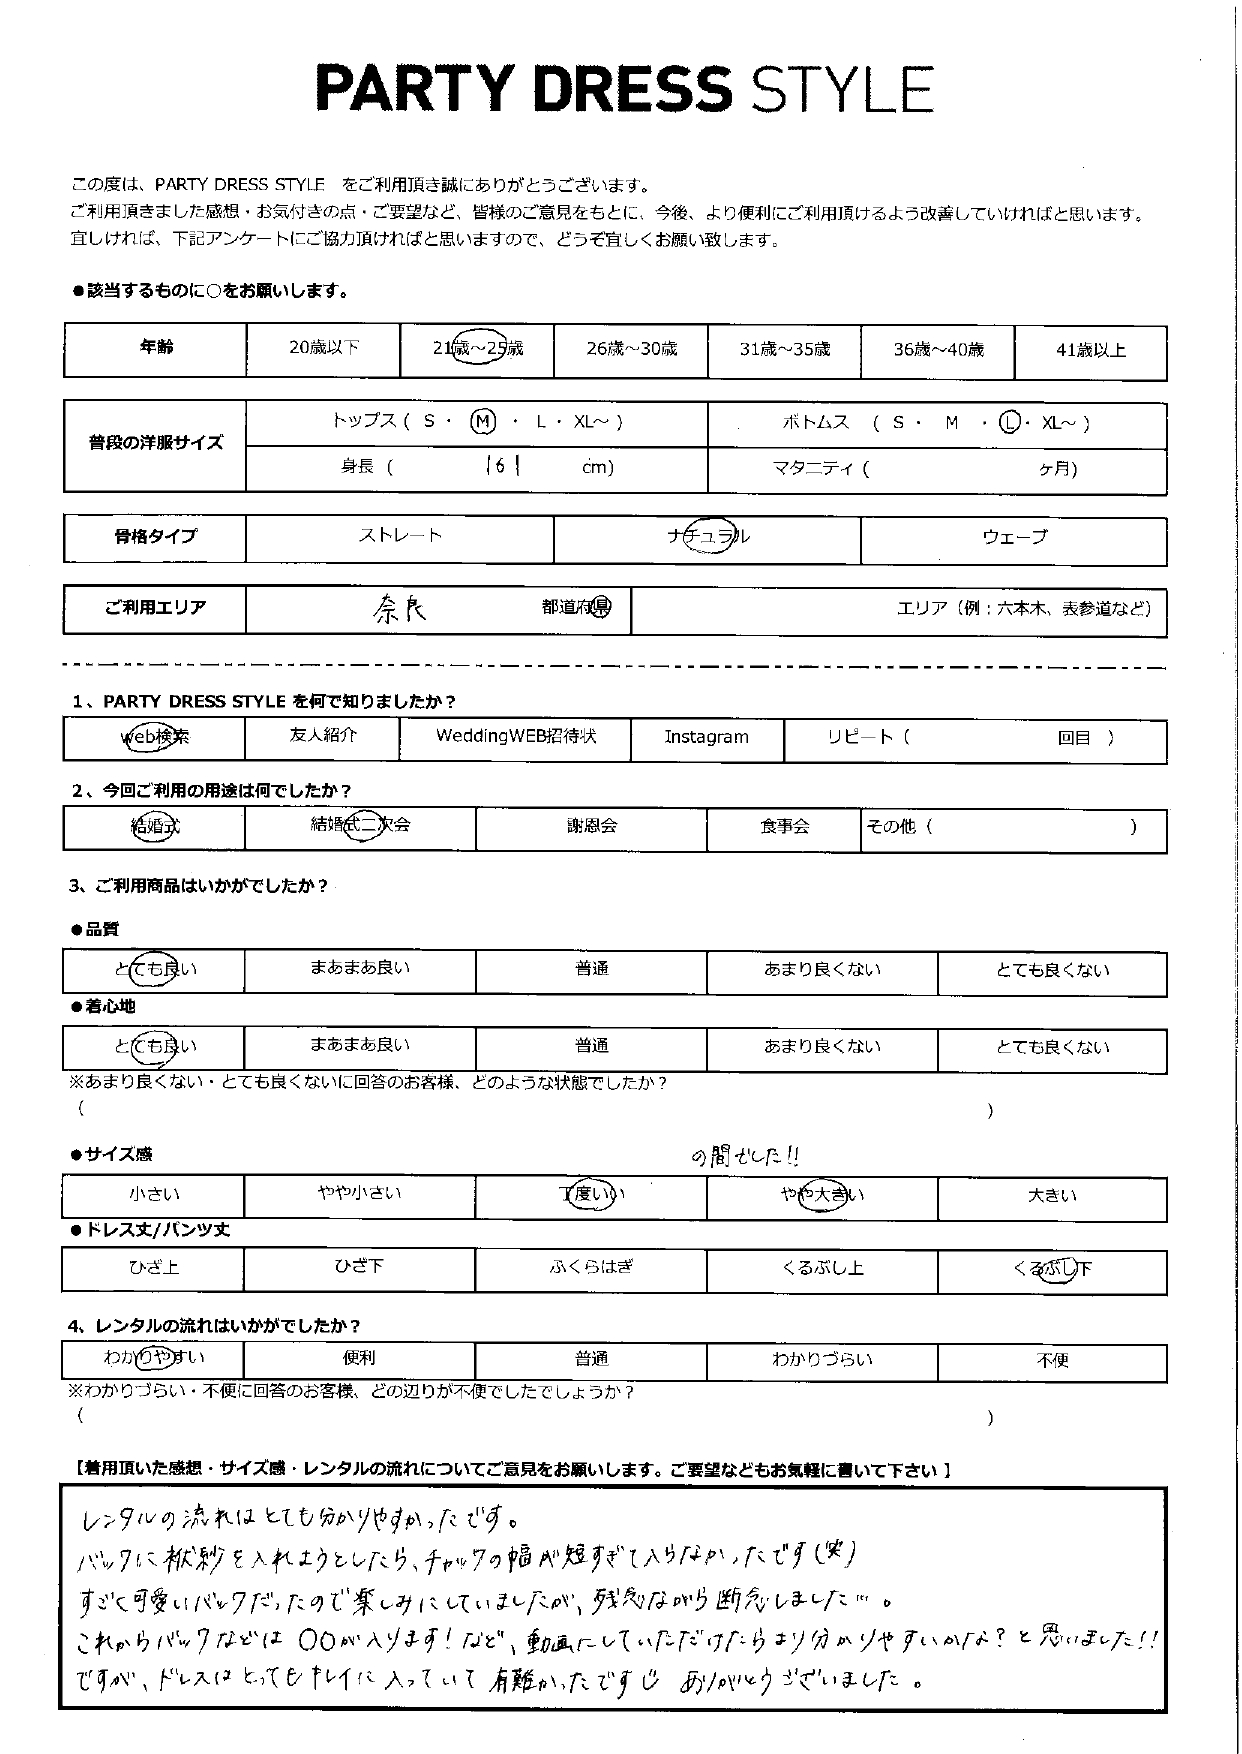 PARTY DRESS STYLE
この度は、PARTY DRESS STYLE をご利用頂き誠にありがとうございます。
ご利用頂きました感想・お気付きの点・ご要望など、皆様のご意見をもとに、今後、より便利にご利用頂けるよう改善していければと思います。
宜しければ、下記アンケートにご協力頂ければと思いますので、どうぞ宜しくお願い致します。
●該当するものに○をお願いします。
年齢 20歳以下 21歳～25歳 26歳～30歳 31歳～35歳 36歳～40歳 41歳以上
普段の洋服サイズ トップス ( S ・ M ・ L ・ XL～ ) ボトムス ( S ・ M ・ L ・ XL～ )
身長 ( 161 cm) マタニティ ( ヶ月)
骨格タイプ ストレート ナチュラル ウェーブ
ご利用エリア 奈良 都道府県 エリア（例：六本木、表参道など）
1、PARTY DRESS STYLE を何で知りましたか？
web検索 友人紹介 WeddingWEB招待状 Instagram リピート ( 回目 )
2、今回ご利用の用途は何でしたか？
結婚式 結婚式二次会 謝恩会 食事会 その他 ( )
3、ご利用商品はいかがでしたか？
●品質
とても良い まあまあ良い 普通 あまり良くない とても良くない
●着心地
とても良い まあまあ良い 普通 あまり良くない とても良くない
※あまり良くない・とても良くないに回答のお客様、どのような状態でしたか？
( )
●サイズ感 の間でした!!
小さい やや小さい 丁度いい やや大きい 大きい
●ドレス丈/パンツ丈
ひざ上 ひざ下 ふくらはぎ くるぶし上 くるぶし下
4、レンタルの流れはいかがでしたか？
わかりやすい 便利 普通 わかりづらい 不便
※わかりづらい・不便に回答のお客様、どの辺りが不便でしたでしょうか？
( )
【着用頂いた感想・サイズ感・レンタルの流れについてご意見をお願いします。ご要望などもお気軽に書いて下さい 】
レンタルの流れはとても分かりやすかったです。
バックに袱紗を入れようとしたら、チャックの幅が短すぎて入らなかったです(笑)
すごく可愛いバックだったので楽しみにしていましたが、残念ながら断念しました…。
これからバックなどは ○○が入ります！など、動画にしていただけたらより分かりやすいかな？と思いました!!
ですが、ドレスはとってもキレイに入っていて有難かったです ありがとうございました。